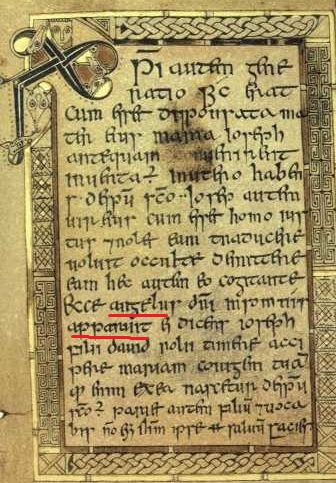 XPI autem gene
ratio sc erat
cum esset disponsata ma
ter eius maria ioseph
antequam
inuenta ÷ inutero haben
s despū scō ioseph autem
uir eius cum esset homo ius
tus ⁊ nolle eam traducere
uoluit occulte dimittere
eam hec autem eo cogitante
Ecce angelus dñi insomnis
apparuit ei dicens ioseph
fili dauid noli timere acci
pere mariam coniugem tuā
enim exea nascetur despū
scō ÷ pariet autem filium ⁊ uoca
bis ipse saluum faciet